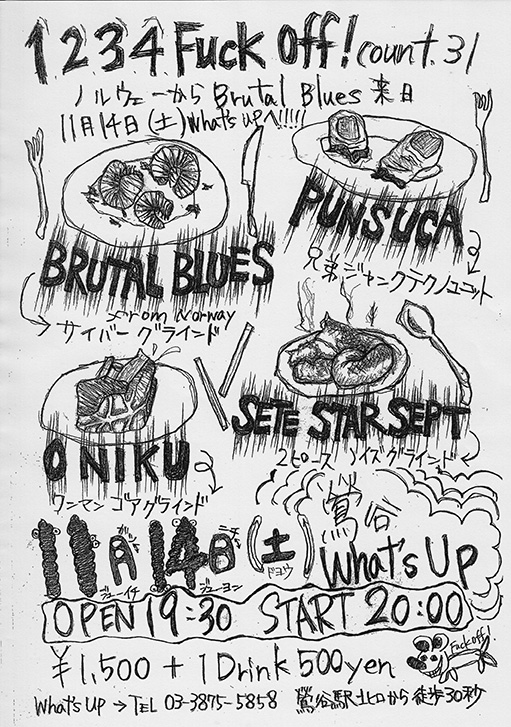 1234 Fuck Off! count.31
ノルウェーから Brutal Blues 来日
11月14日(土)What's upへ!!!!!
BRUTAL BLUES
from Norway
サイバーグラインド
PUNSUCA
兄弟ジャンクテクノユニット
ONIKU
ワンマンゴアグラインド
SETE STAR SEPT
2ピースノイズグラインド
11月14日(土)
ジューイチ ガツ ジューヨン ニチ ドヨウ
鶯谷
What's Up
OPEN 19:30 START 20:00
¥1,500 + 1Drink 500yen
Fuck off!
What's Up → TEL 03-3875-5858 鶯谷駅北口から徒歩30秒